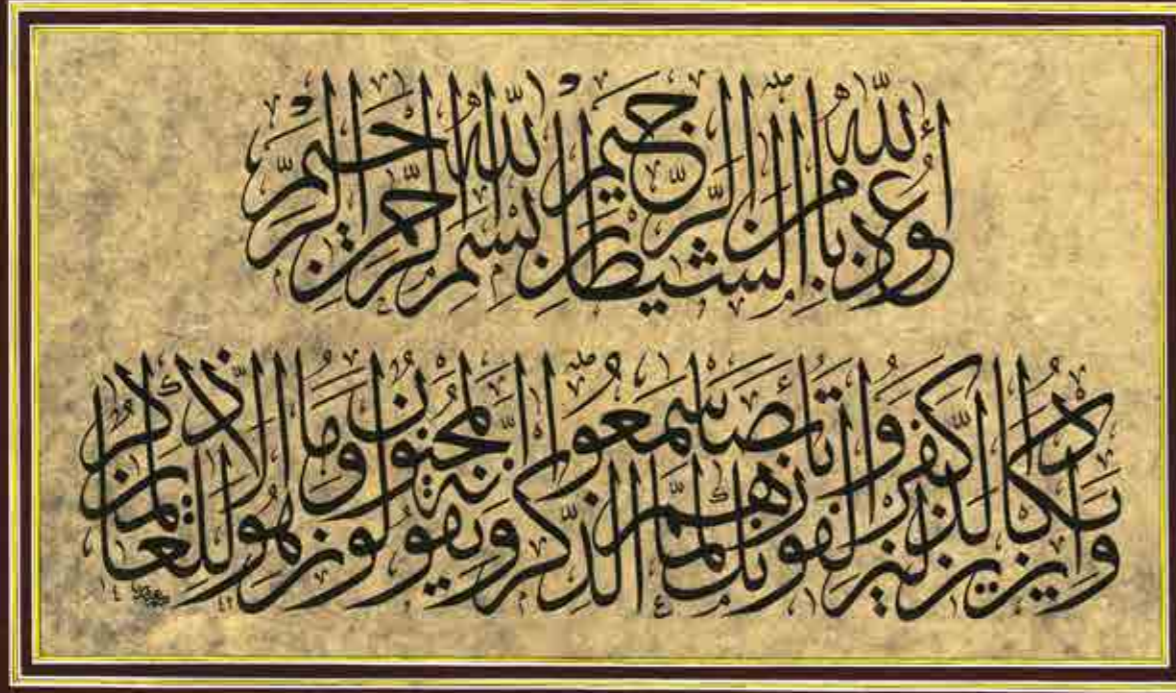 أعوذ بالله من الشيطان الرجيم بسم الله الرحمن الرحيم
وإن يكاد الذين كفروا ليزلقونك بأبصارهم لما سمعوا الذكر ويقولون إنه لمجنون وما هو إلا ذكر للعالمين